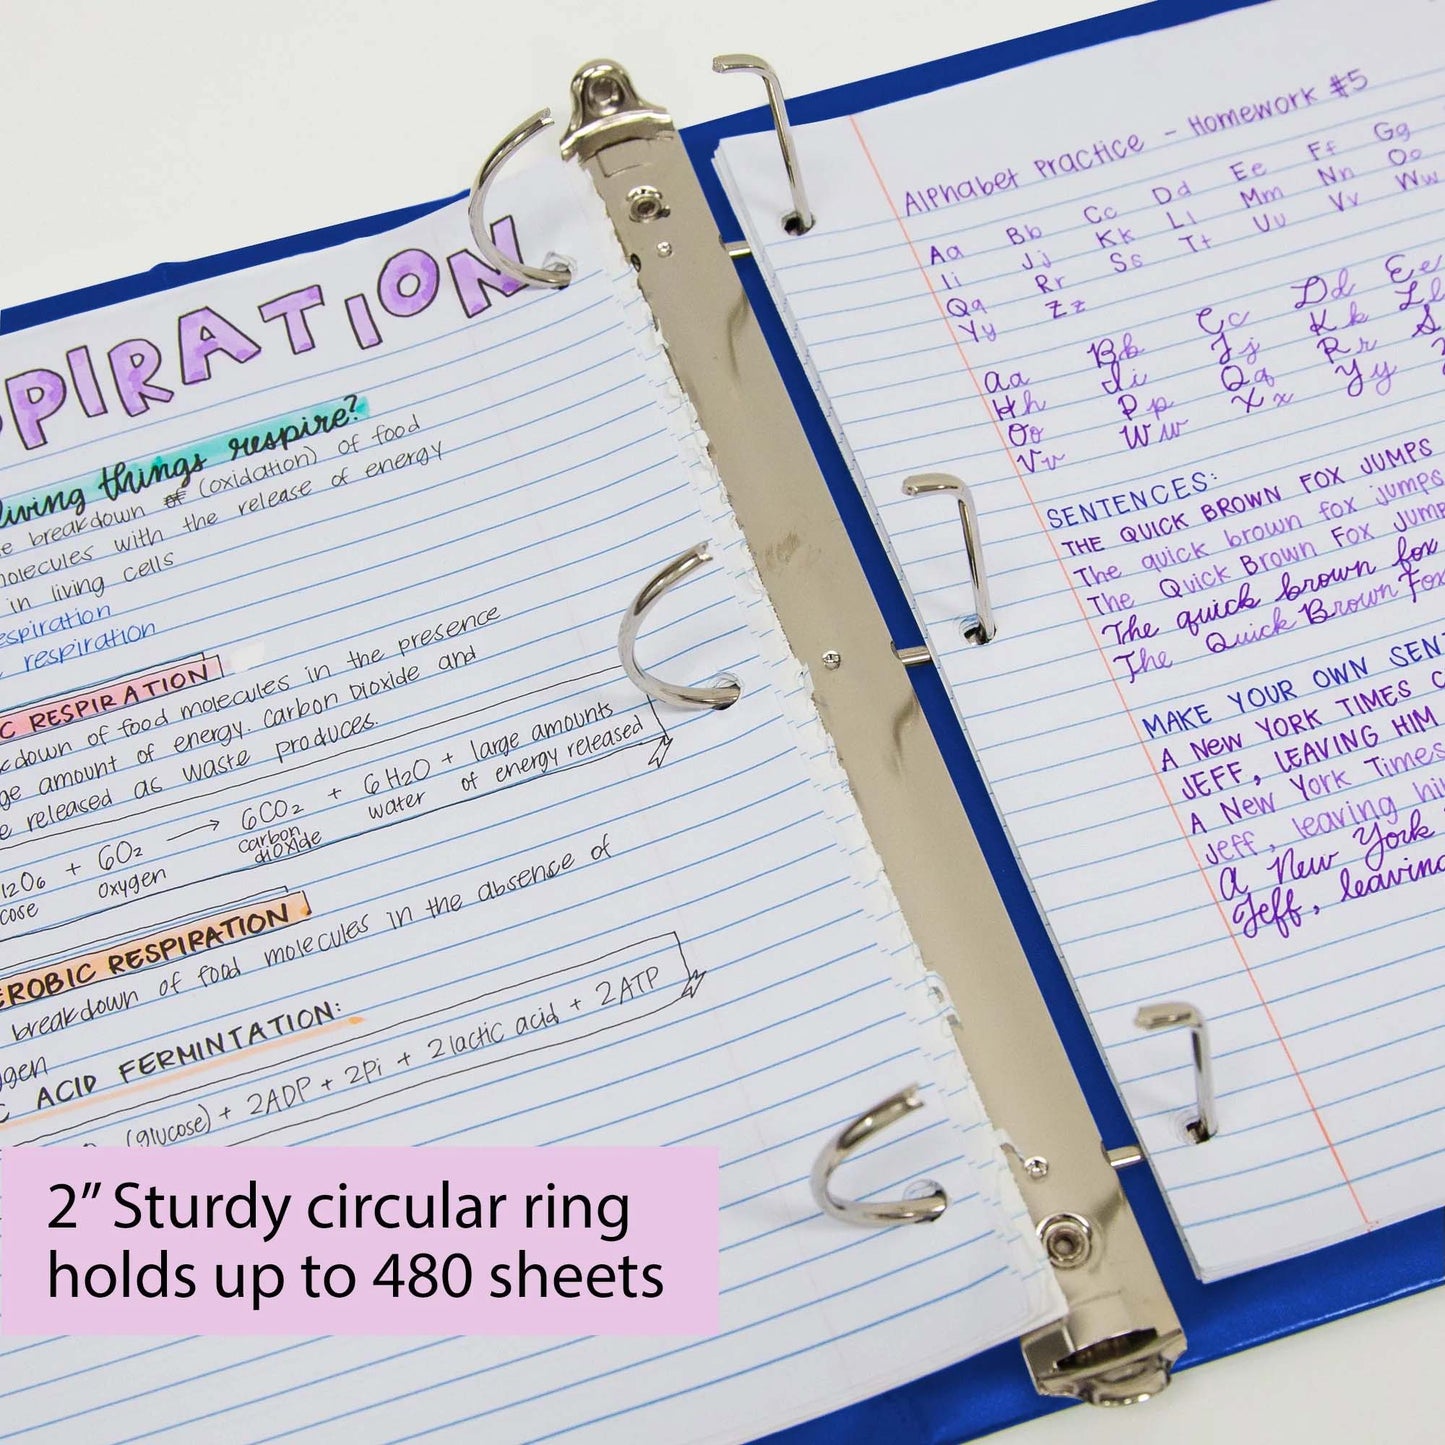 PIRATION
living things respire?
breakdown of (oxidation) of food
molecules with the release of energy
in living cells
respiration
respiration
RESPIRATION
breakdown of food molecules in the presence
amount of energy. Carbon Dioxide and
released as waste produces.
12O6 + 6O2 → 6CO2 + 6H2O + large amounts
oxygen carbon dioxide water of energy released
EROBIC RESPIRATION
breakdown of food molecules in the absence of
C ACID FERMINTATION:
(glucose) + 2ADP + 2Pi + 2 lactic acid + 2ATP
2” Sturdy circular ring
holds up to 480 sheets
Alphabet Practice - Homework #5
Aa Bb Cc Dd Ee Ff Gg
Ii Jj Kk Ll Mm Nn Oo
Qq Rr Ss Tt Uu Vv Ww
Yy Zz
Aa Bb Cc Dd Ee
Hh Ii Jj Kk Ll
Oo Pp Qq Rr S
Vv Ww Xx Yy
SENTENCES:
THE QUICK BROWN FOX JUMPS
The quick brown fox jumps
The Quick Brown Fox Jump
The quick brown fox
The Quick Brown Fox
MAKE YOUR OWN SEN
A NEW YORK TIMES C
JEFF, LEAVING HIM
A New York Times
Jeff, leaving hi
A New York
Jeff, leaving